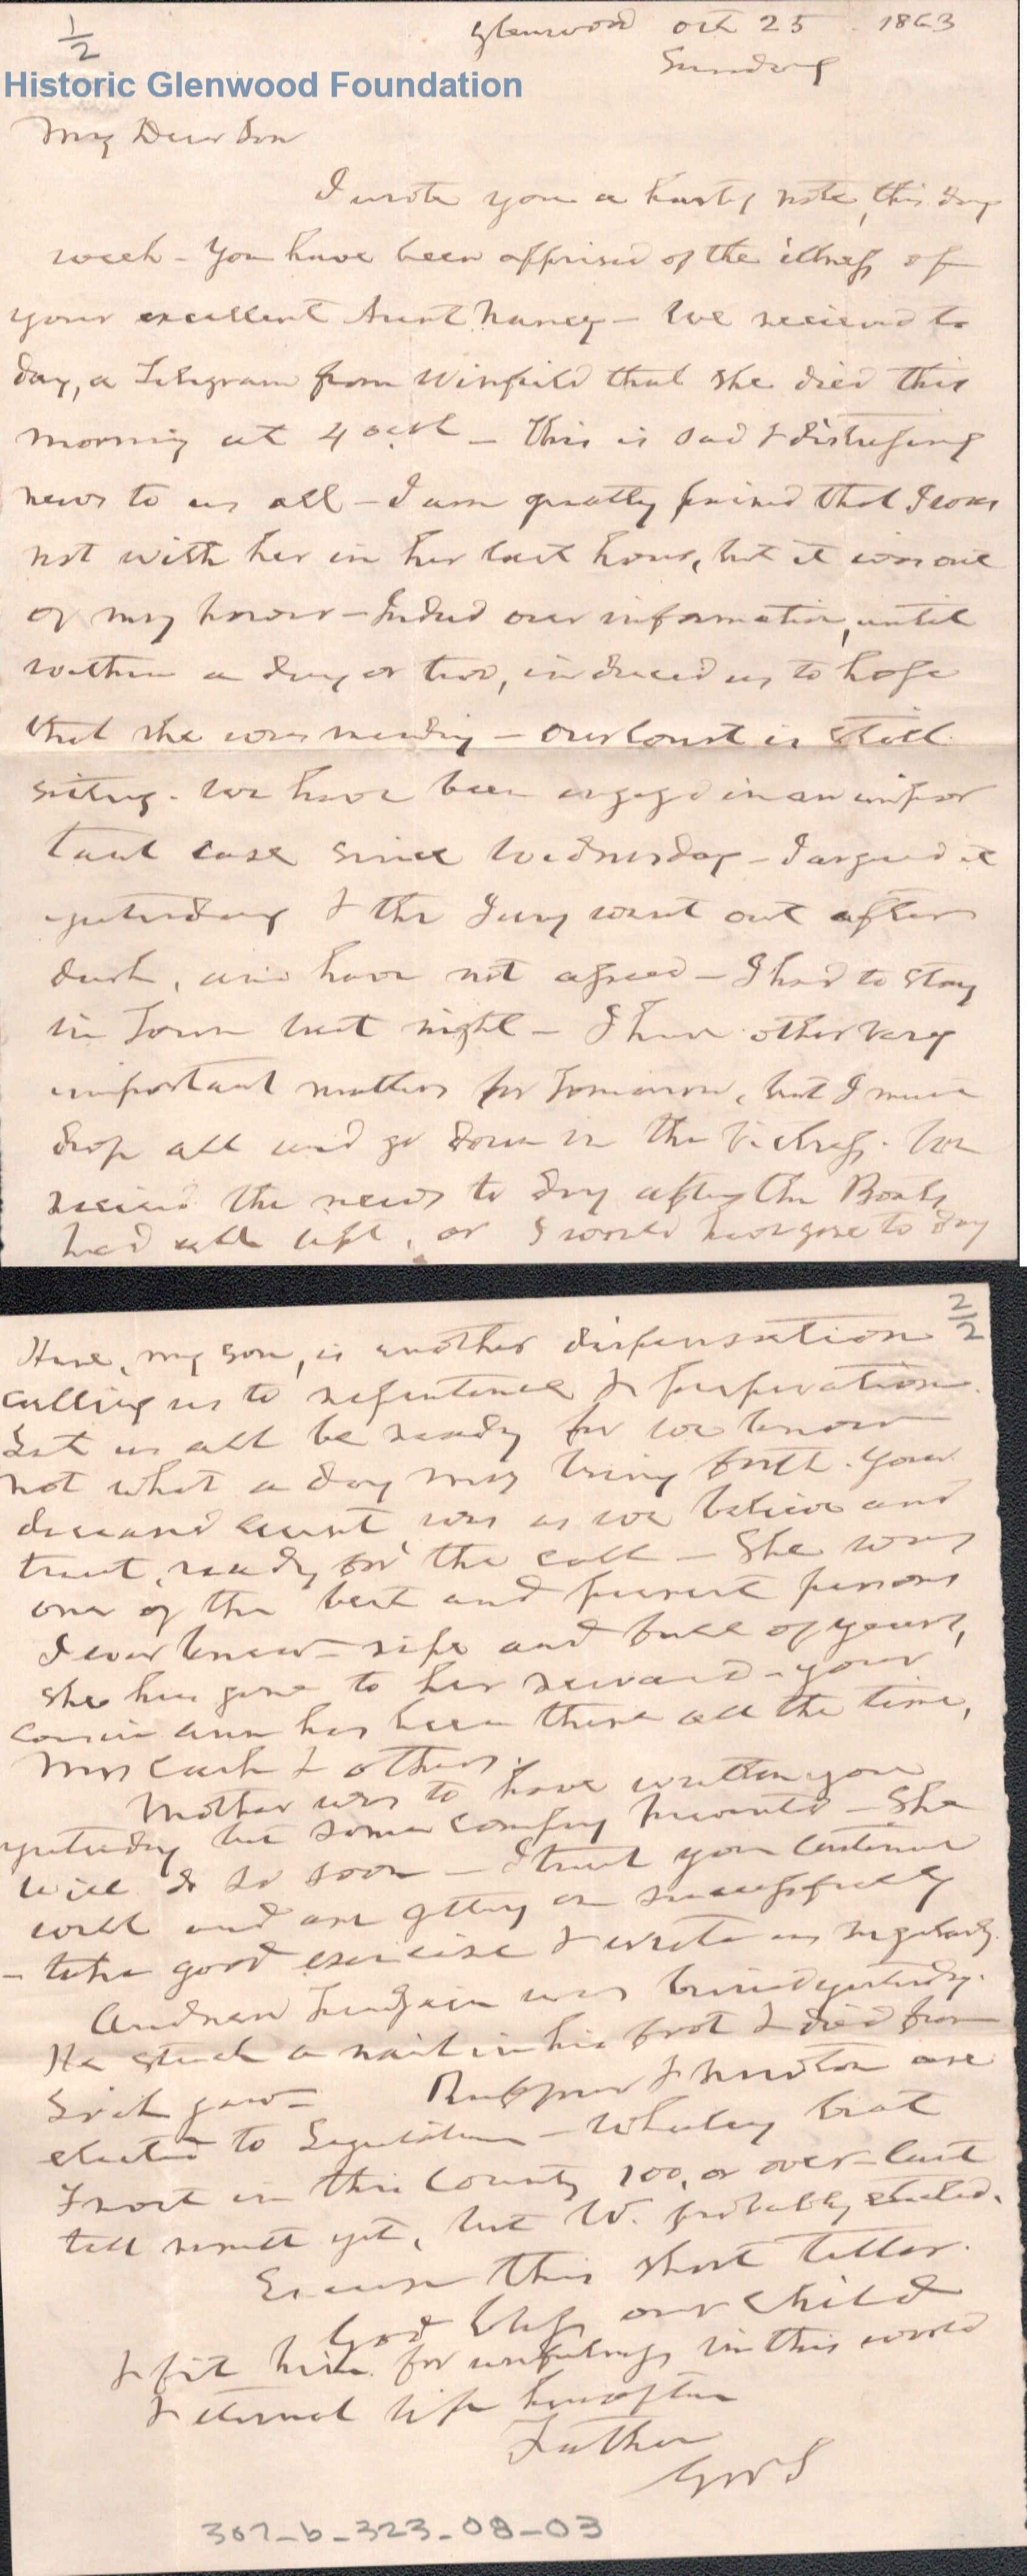 1/2
Glenwood Oct 25. 1863
Sunday
Historic Glenwood Foundation
My Dear Son
I wrote you a hasty note, this day
week - You have been apprised of the illness of
your excellent Aunt Nancy - We recieved to
day, a Telegram from Winfield that she died this
morning at 4 oclk - This is sad & distressing
news to us all - I am greatly pained that I was
not with her in her last hours, but it was out
of my power - Indeed our information, until
within a day or two, induced us to hope
that she was mending - Our Court is still
sitting. We have been engaged in an impor
tant case since Wednesday - I argued it
yesterday & the Jury went out after
dark, and have not agreed - I had to stay
in Town last night - I have other very
important matters for Tomorrow, but I must
drop all and go down in the . We
recieved the news to day after the Boats
had all left, or I would have gone to day
2/2
Here, my son, is another dispensation
calling us to repentance & preparation.
Let us all be ready for we know
not what a day may bring forth. Your
deceased aunt was as we believe and
trust, ready for the call - She was
one of the best and purest persons
I ever knew - ripe and full of years,
she has gone to her reward - your
cousin Ann has been there all the time,
Mrs Cash & others.
Mother was to have written you
yesterday but some company prevented - She
will do so soon - I trust you continue
well and are getting on successfully
- take good exercise & write us regularly.
Andrew was buried yesterday.
He stuck a nail in his foot & died from
Lock jaw - & are
elected to Legislature - Whaley beat
Frost in this County 100, or over - Cant
tell result yet, but W. probably elected.
Excuse this short letter.
God bless our child
& fit him for usefulness in this world
& eternal life hereafter
Father
GWS
307-b-323-08-03